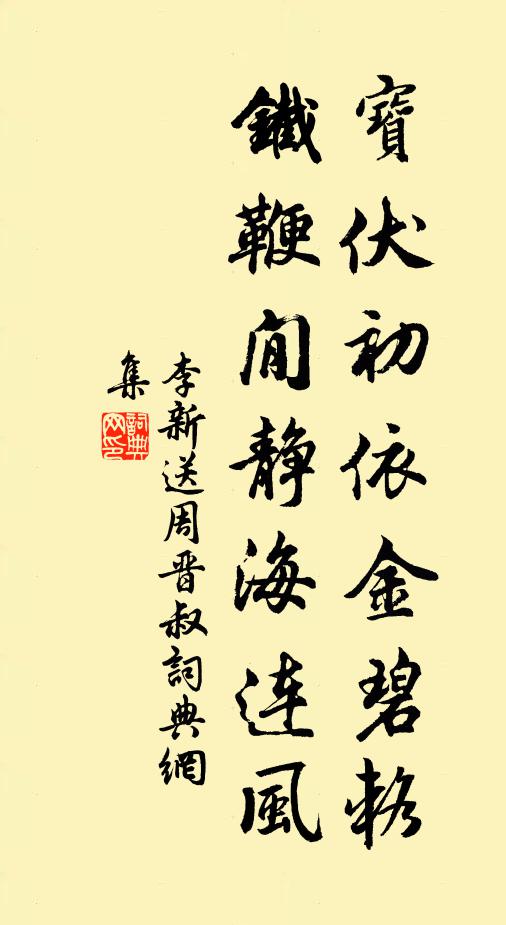 寶伏初依金碧輅
鐵鞭閒静海連風
李新送周晋叔詞典網
集
詞典网印